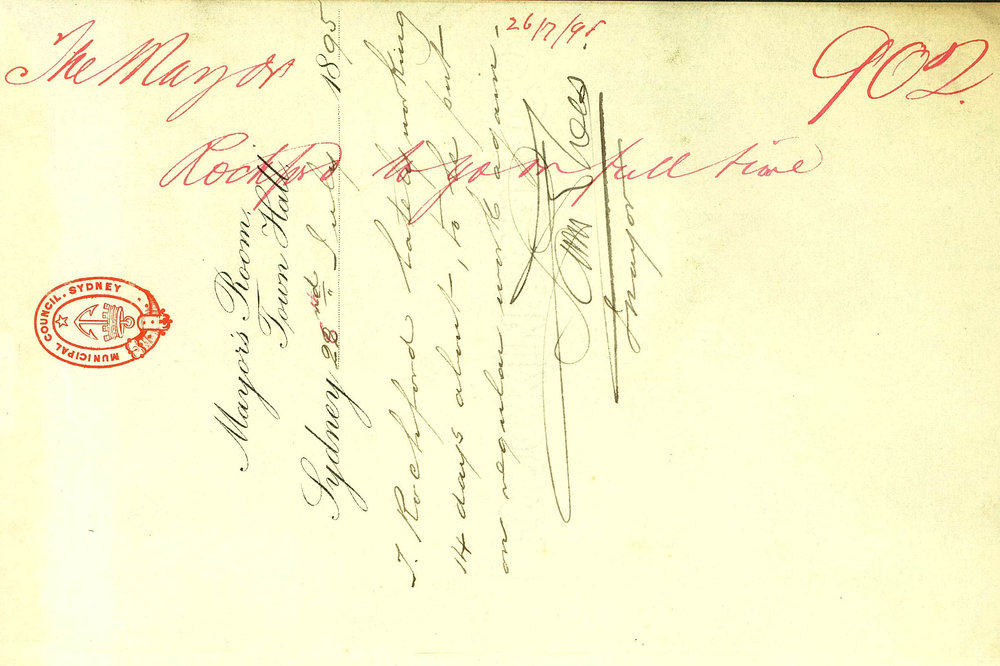 26/7/95.
The Mayor
902.
Rochford to go on full time
MUNICIPAL COUNCIL. SYDNEY
Mayor's Room,
Town Hall
Sydney 23rd July 1895
J. Rochford lately working
14 days about, to be put
on regular work again.
Mayor